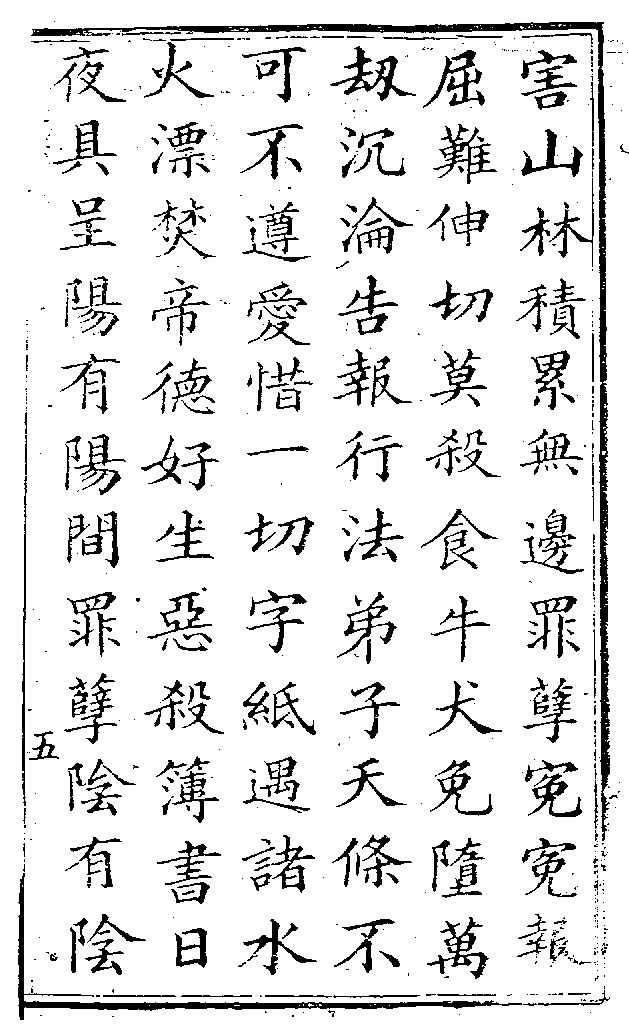 害山林積累無邊罪孽寃寃報
屈難伸切莫殺食牛犬免墮萬
刼沉淪告報行法弟子天條不
可不遵愛惜一切字紙遇諸水
火漂焚帝德好生惡殺簿書日
夜具呈陽有陽間罪孽陰有陰
五